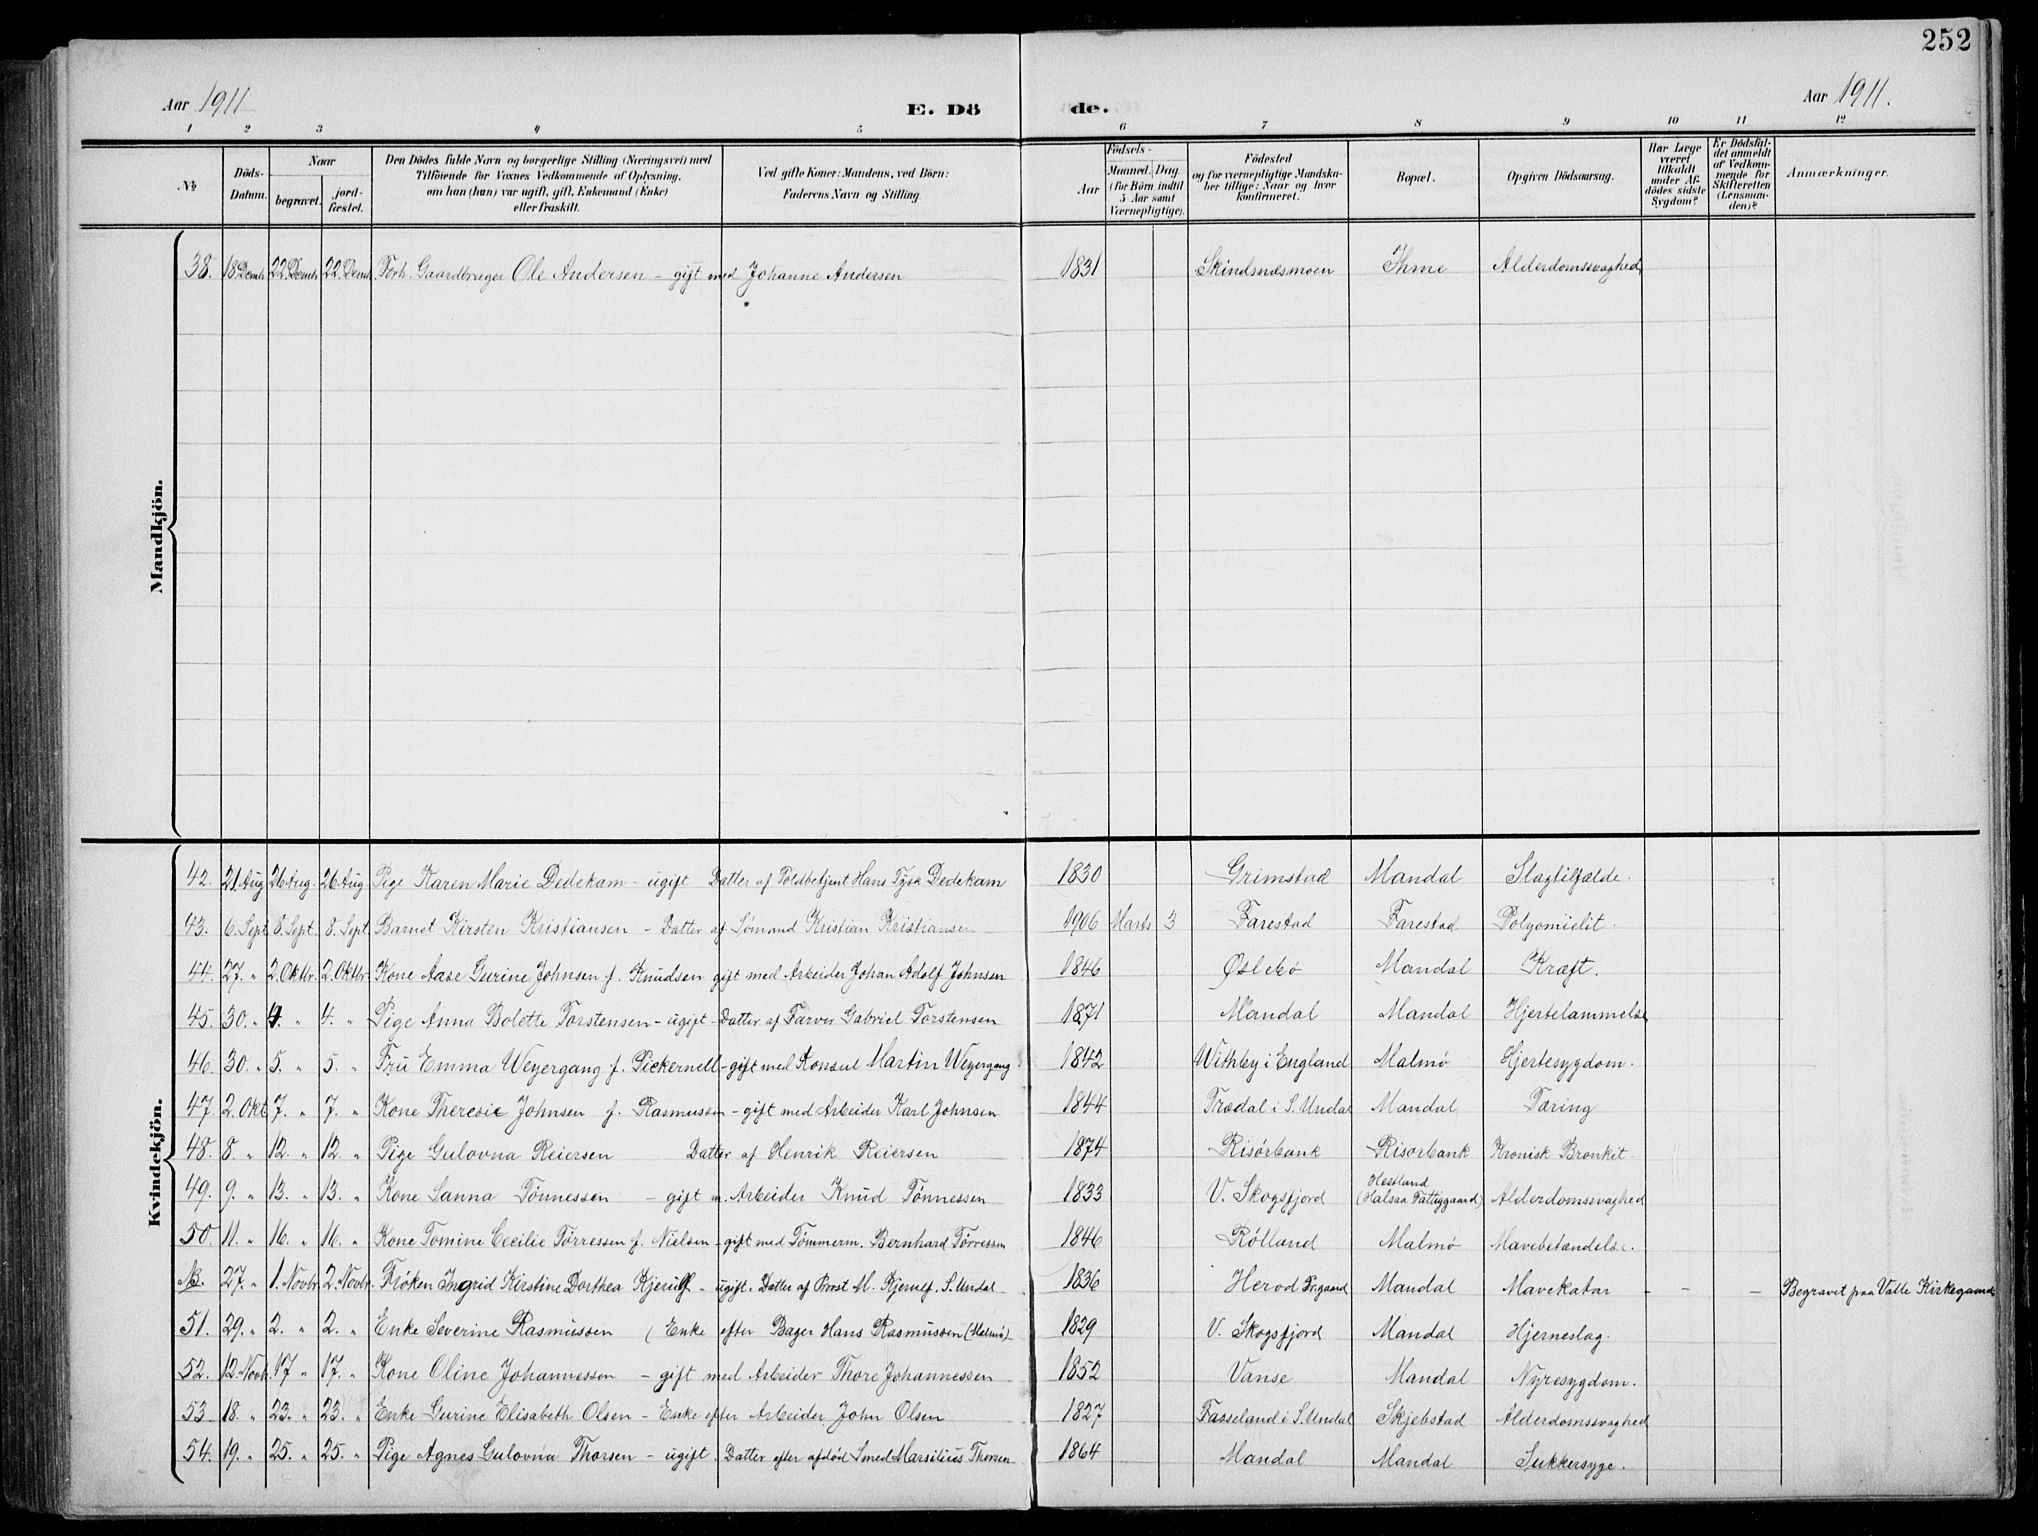 252
Aar 1911
E. Dö de.
Aar 1911.
1 2 3 4 5 6 7 8 9 10 11 12
№
Döds-Datum.
Naar
begravet.
jord-fæstet.
Den Dödes fulde Navn og borgerlige Stilling (Næringsvei) med
Tilföiende for Voxnes Vedkommende af Oplysning,
om han (hun) var ugift, gift, Enkemand (Enke)
eller fraskilt.
Ved gifte Koner: Mandens, ved Börn:
Faderens Navn og Stilling.
Födsels-
Aar
Maaned. Dag.
(for Börn indtil
5 Aar samt
Værnepligtige).
Födested
og for værnepligtige Mandska-
ber tillige: Naar og hvor
konfirmeret.
Bopæl.
Opgiven Dödsaarsag.
Har Læge
været
tilkaldt
under Af-
dödes sidste
Sygdom?
Er Dödsfal-
det anmeldt
af Vedkom-
mende for
Skifteretten
(Lensman-
den)?
Anmærkninger.
Mandkjön.
38. 18. Decmbr 22. Decmbr 22. Decmbr. Forh. Gaardbruger Ole Andersen – gift med Johanne Andersen 1831 Skindsnæsmoen Ihme Alderdomssvaghed
Kvindekjön.
42. 21 Aug 26 Aug. 26 Aug. Pige Karen Marie Dedekam – ugift Datter af Toldbetjent Hans Tysk Dedekam 1830 Grimstad Mandal Slagtilfælde.
43. 6. Sept 8. Sept. 8. Sept. Barnet Kirsten Kristiansen – Datter af Sømand Kristian Kristiansen 1906 Marts 3 Farestad Farestad Polyomielit.
44. 27. " 2. Oktbr. 2. Oktbr. Kone Aase Gurine Johnsen f. Knudsen gift med Arbeider Johan Adolf Johnsen 1846 Øslebø Mandal Kræft.
45. 30. " 4. " 4. " Pige Anna Bolette Torstensen – ugift – Datter af Farver Gabriel Torstensen 1871 Mandal Mandal Hjertelammelse
46. 30. " 5. " 5. " Fru Emma Weyergang f. Pickernell – gift med Konsul Martin Weyergang 1842 Withby i England Malmø Hjertesygdom.
47 2. Okt. 7. " 7. " Kone Theresie Johnsen f. Rasmussen – gift med Arbeider Karl Johnsen 1844 Trædal i S. Undal Mandal Tæring
48. 8. " 12. " 12. " Pige Gulovna Reiersen Datter af Henrik Reiersen 1874 Risørbank Risørbank Kronisk Bronkit.
49. 9. " 13. " 13. " Kone Sanna Tønnessen – gift m. Arbeider Knud Tønnessen 1833 V. Skogsfjord Hestland (Halsaa Fattiggaard) Alderdomssvaghed
50. 11. " 16. " 16. " Kone Tomine Cecilie Tørressen f. Nielsen – gift med Tømmerm. Bernhard Tørressen 1846 Rølland Malmø Mavebetændelse.
NB. 27. " 1. Novbr. 2. Novbr. Frøken Ingrid Kirstine Dorthea Kjerulf – ugift. Datter af Provst M. Kjerulf. S. Undal 1836 Herod Prgaard Mandal Mavekatar – – – Begravet paa Valle Kirkegaard
51. 29. " 2. " 2. " Enke Severine Rasmussen (Enke efter Bager Hans Rasmussen (Malmø) 1829 V. Skogsfjord Mandal Hjerneslag.
52. 12. Novb. 17 " 17. " Kone Oline Johannessen – gift med Arbeider Thore Johannessen 1852 Vanse Mandal Nyresygdom.
53 18. " 23. " 23. " Enke Gurine Elisabeth Olsen – Enke efter Arbeider John Olsen 1827 Fasseland i S. Undal Skjebstad Alderdomssvaghed
54. 19. " 25. " 25. " Pige Agnes Gulovna Thorsen – ugift. Datter efter afdød Smed Marsilius Thorsen 1864 Mandal Mandal Sukkersyge.